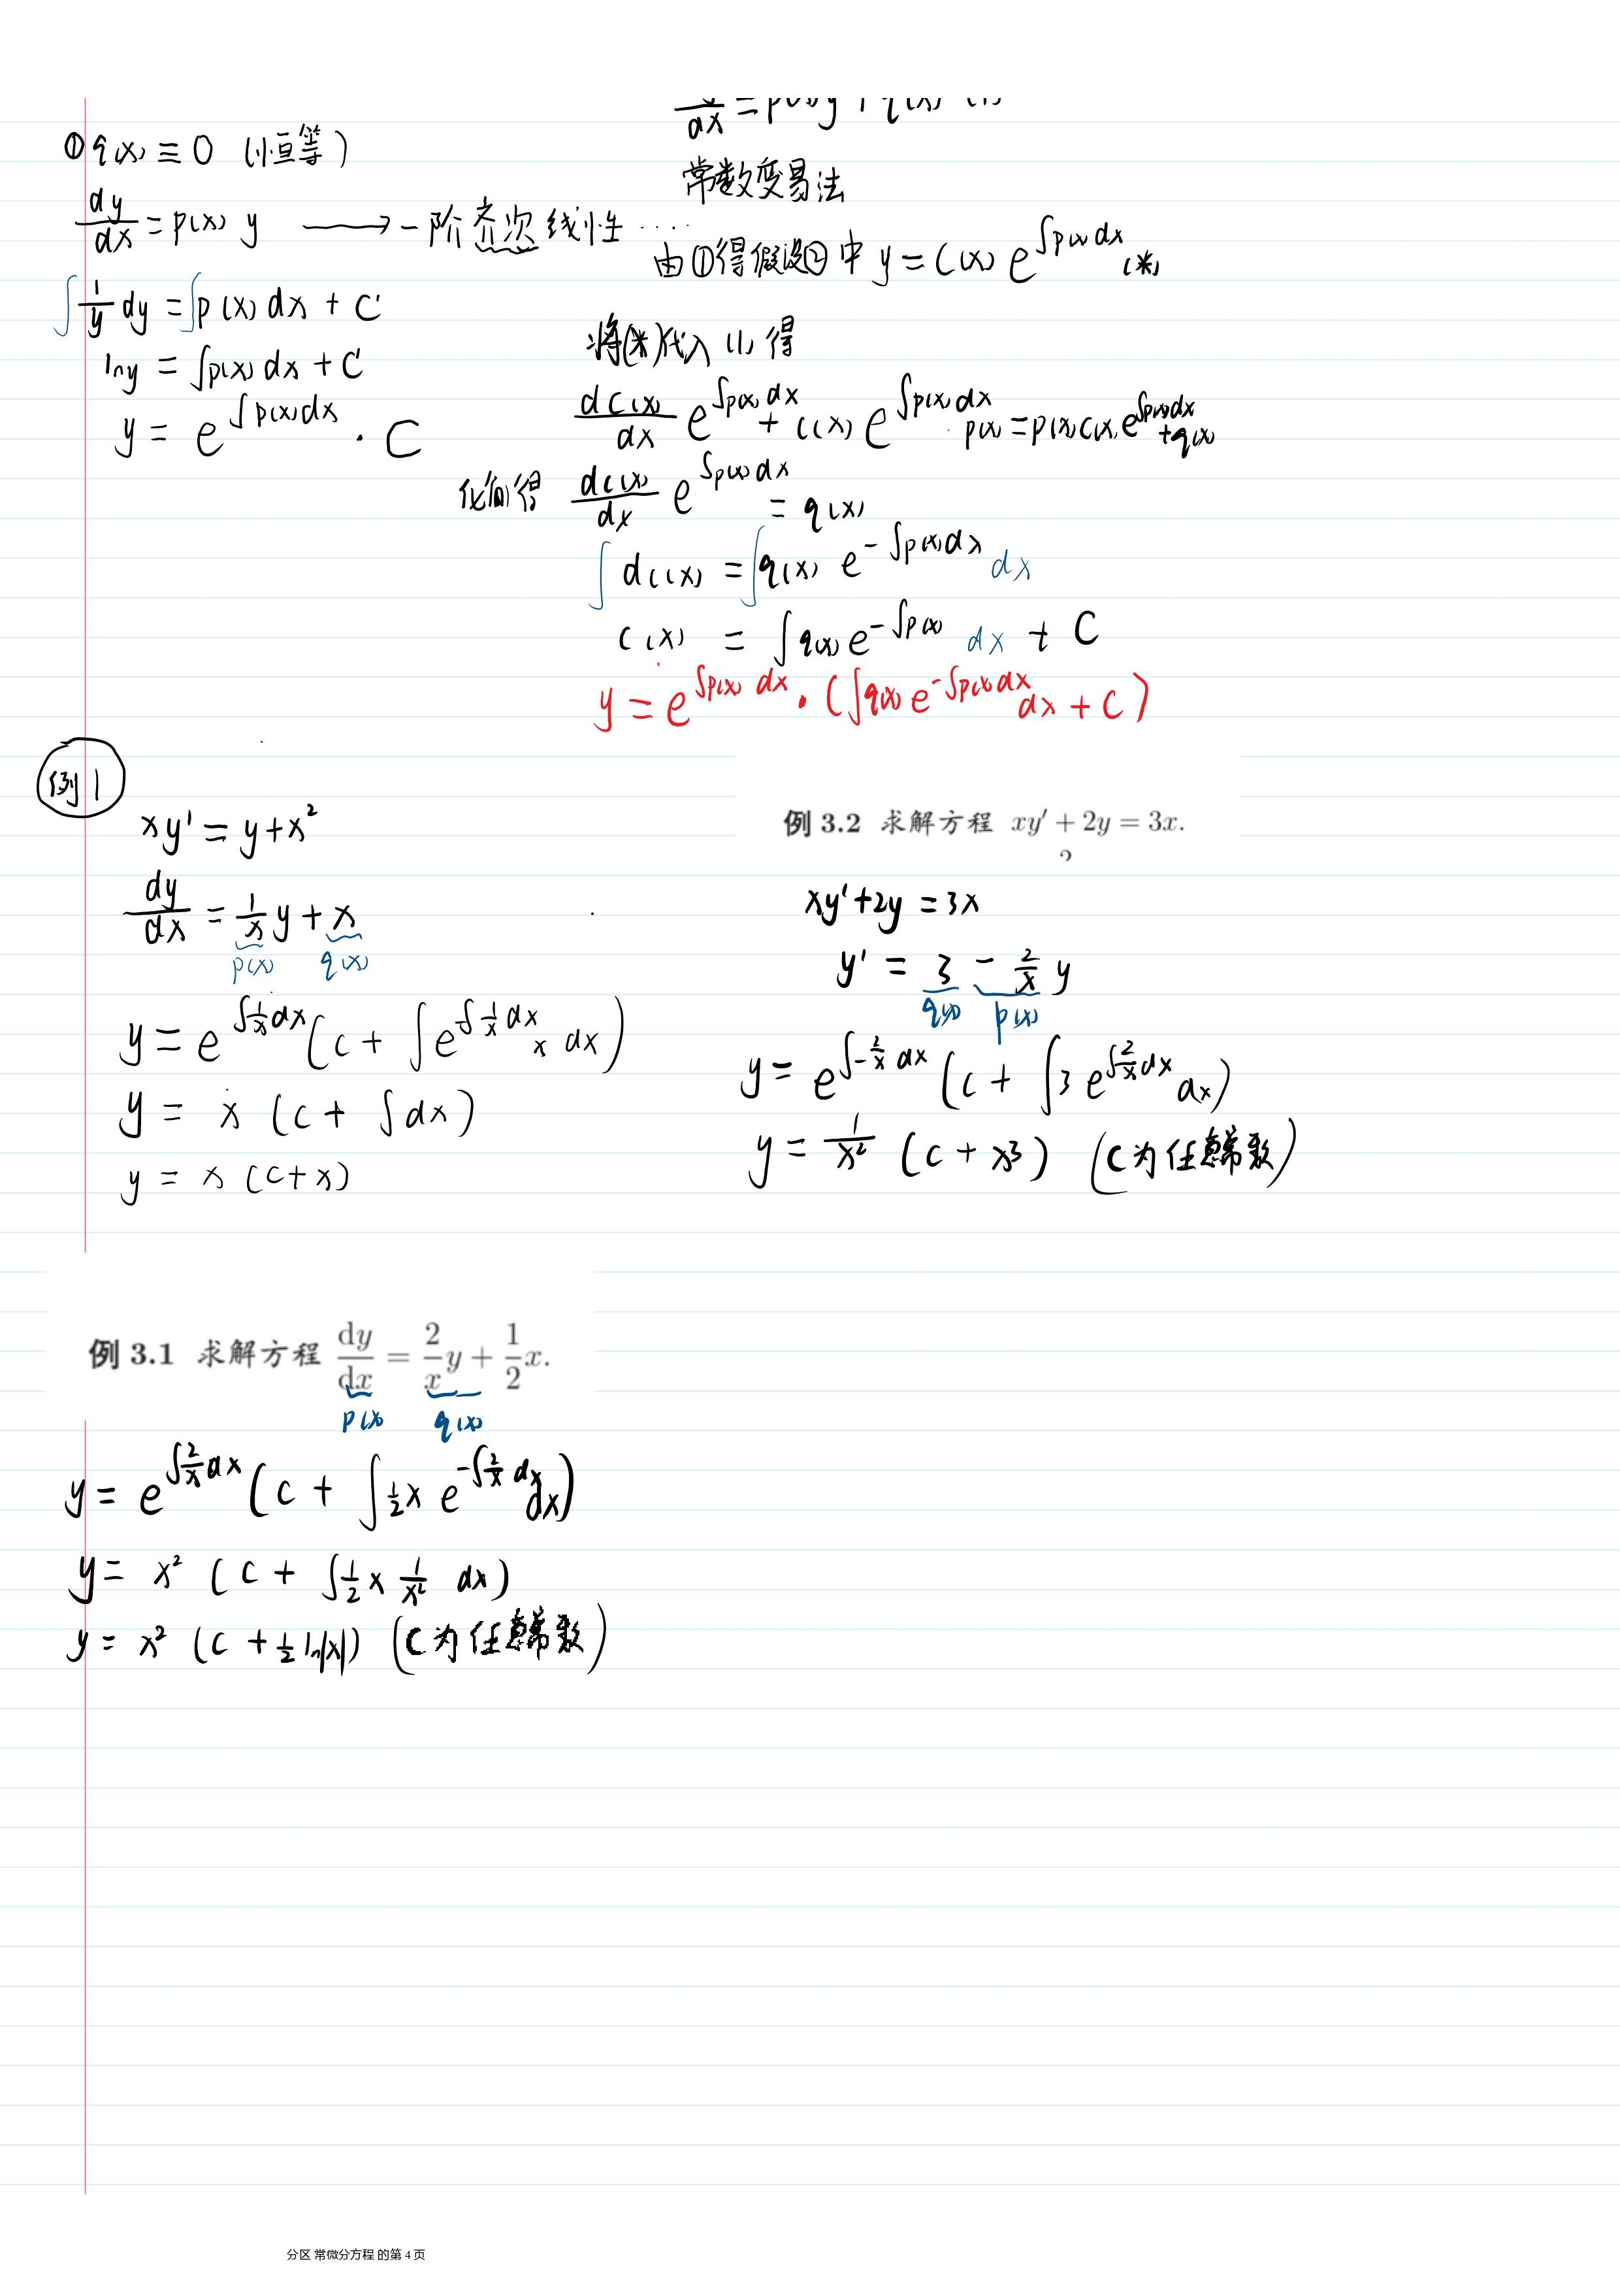 ① q(x) ≡ 0 (恒等)
dy/dx = p(x) y ⟶ 一阶齐次线性 ····
∫ 1/y dy = ∫ p(x) dx + C'
ln y = ∫p(x) dx + C'
y = e^{∫p(x)dx} · C
常数变易法
由①得假设②中 y = C(x) e^{∫p(x)dx} (*)
将(*)代入(1)得
dC(x)/dx e^{∫p(x)dx} + C(x) e^{∫p(x)dx} · p(x) = p(x)C(x) e^{∫p(x)dx} + q(x)
化简得 dC(x)/dx e^{∫p(x)dx} = q(x)
∫ dC(x) = ∫ q(x) e^{-∫p(x)dx} dx
C(x) = ∫ q(x) e^{-∫p(x)} dx + C
y = e^{∫p(x)dx} · (∫q(x) e^{-∫p(x)dx} dx + C)
例1
xy' = y + x²
dy/dx = 1/x y + x
p(x) q(x)
y = e^{∫1/x dx} (C + ∫ e^{-∫1/x dx} x dx)
y = x (C + ∫dx)
y = x (C + x)
例 3.2 求解方程 xy′ + 2y = 3x.
xy' + 2y = 3x
y' = 3 - 2/x y
q(x) p(x)
y = e^{∫-2/x dx} (C + ∫3 e^{∫2/x dx} dx)
y = 1/x² (C + x³) (C为任意常数)
例 3.1 求解方程 dy/dx = 2/x y + 1/2 x.
p(x) q(x)
y = e^{∫2/x dx} (C + ∫ 1/2 x e^{-∫2/x dx} dx)
y = x² (C + ∫ 1/2 x 1/x² dx)
y = x² (C + 1/2 ln|x|) (C为任意常数)
分区 常微分方程 的第 4 页